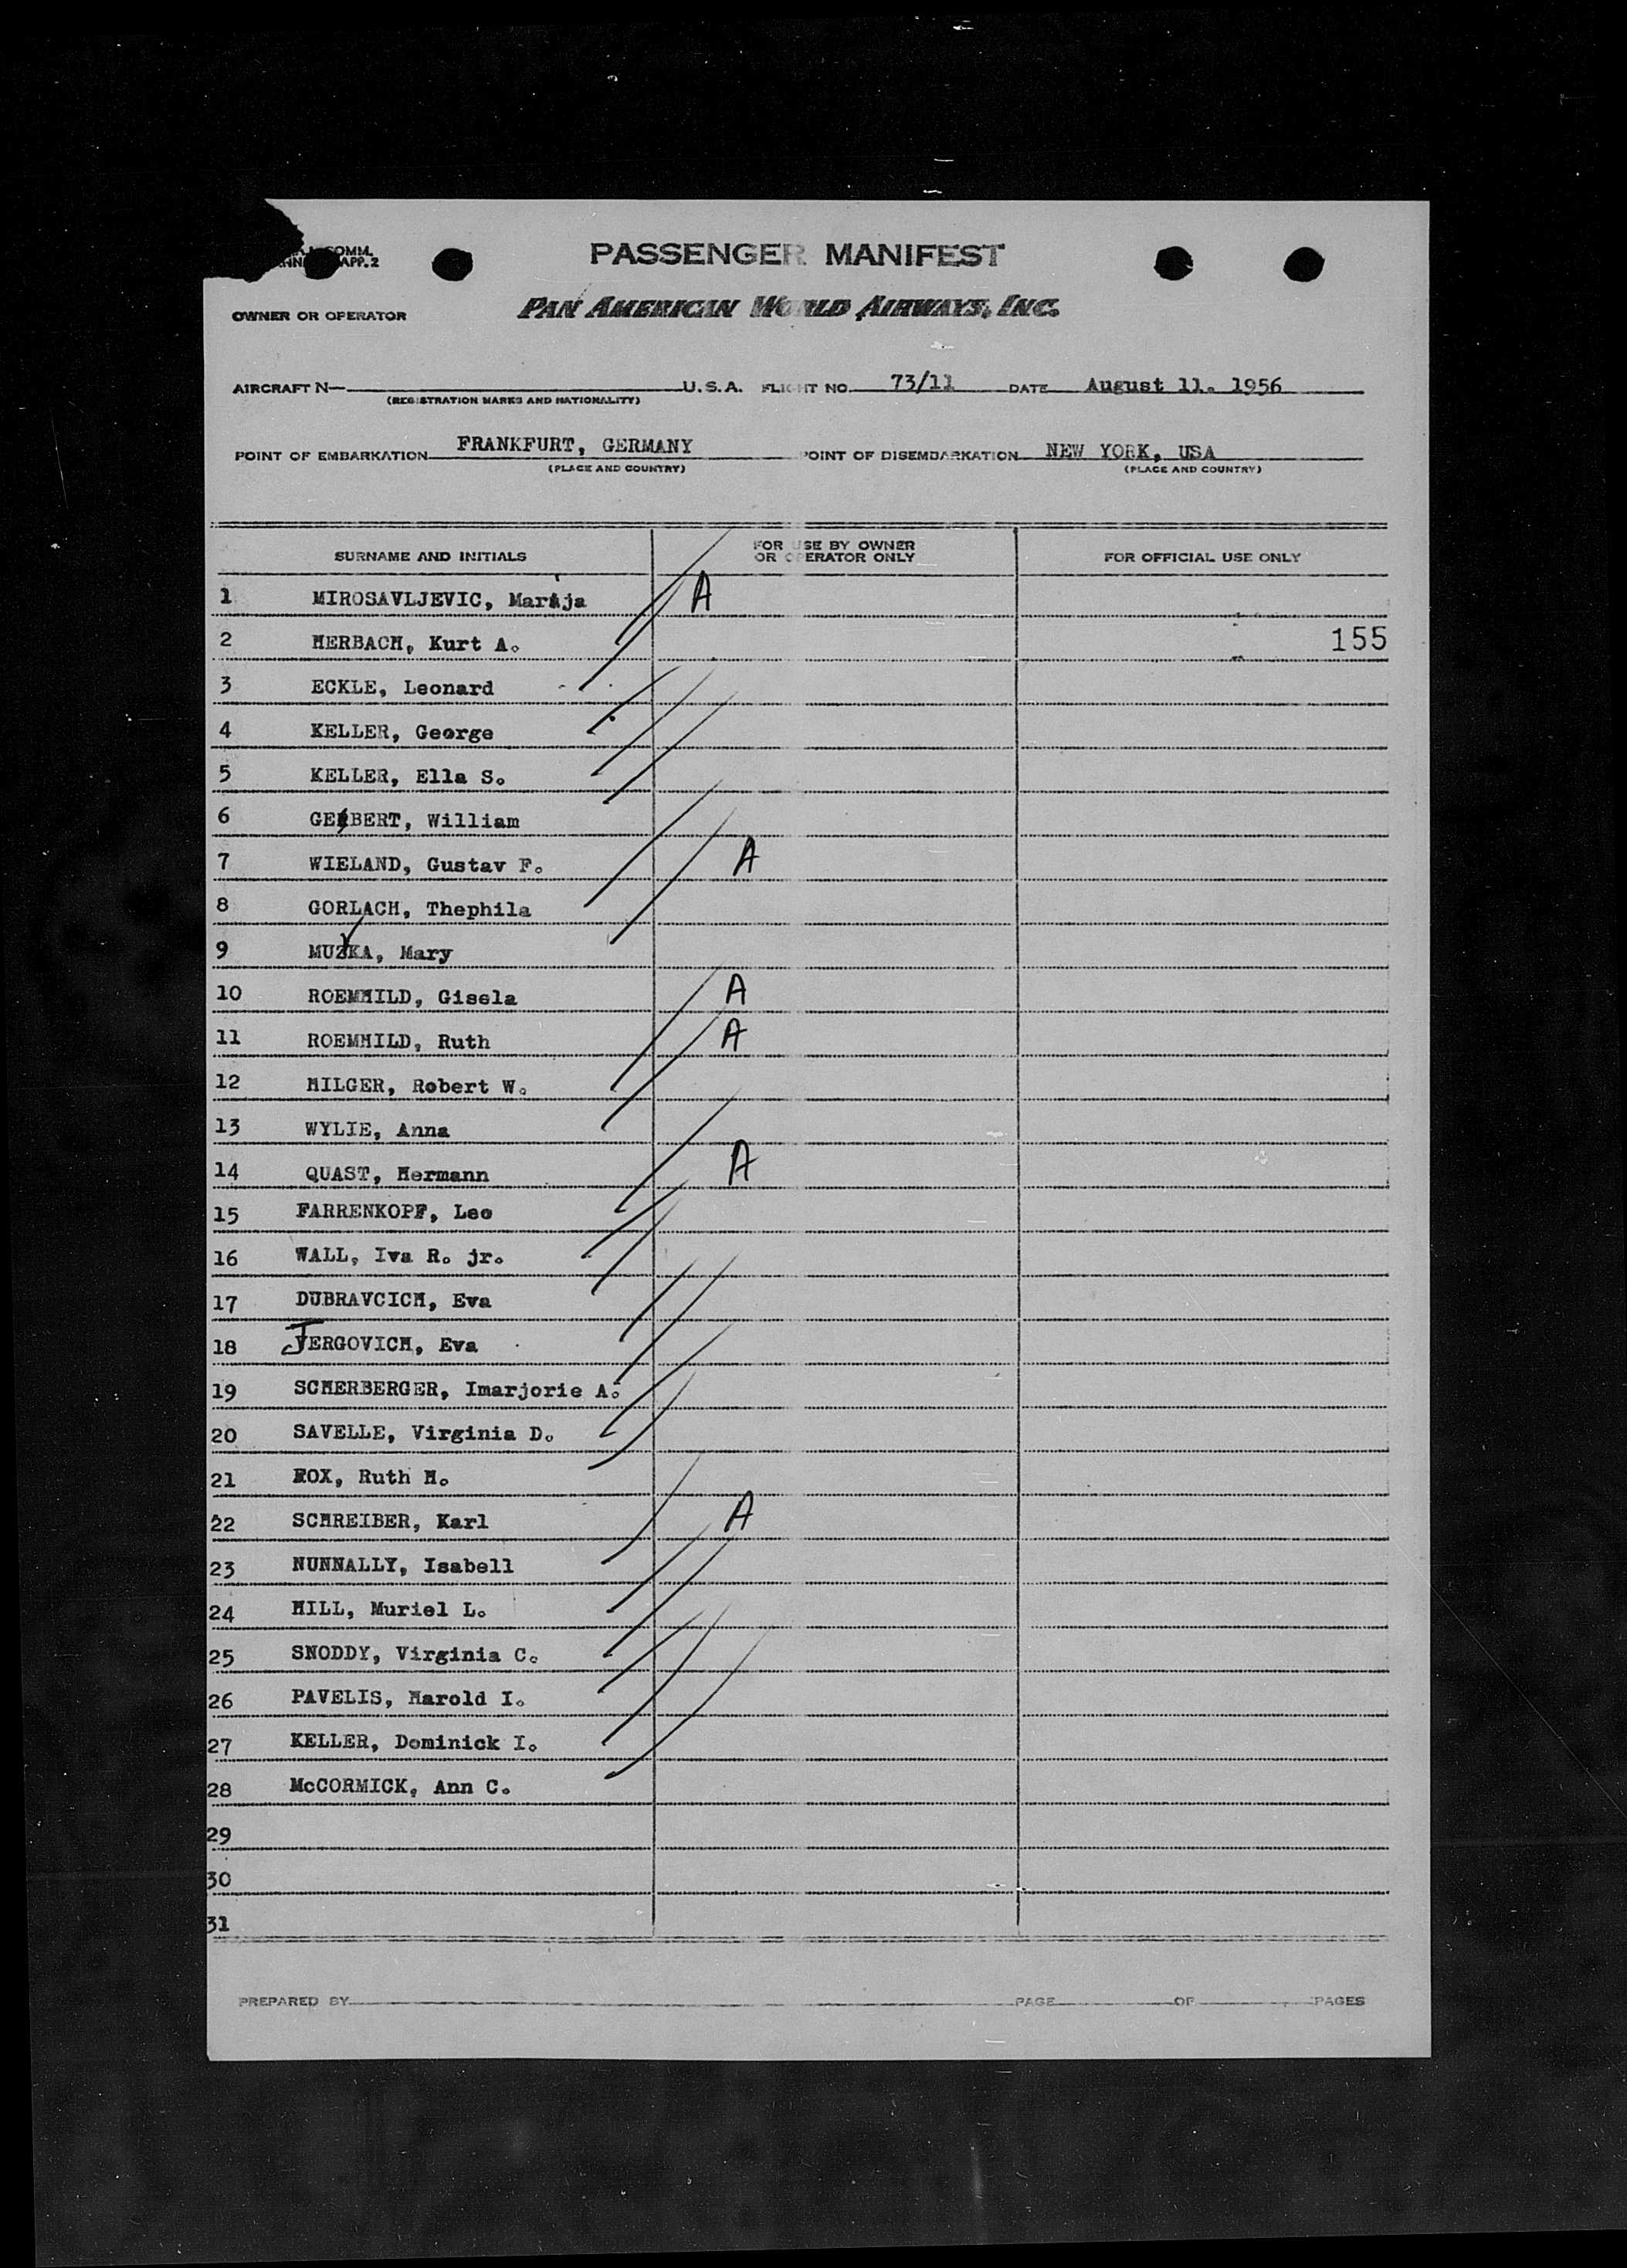 COMM.
APP. 2
PASSENGER MANIFEST
OWNER OR OPERATOR PAN AMERICAN WORLD AIRWAYS, INC.
AIRCRAFT N— U.S.A. FLIGHT NO. 73/11 DATE August 11. 1956
(REGISTRATION MARKS AND NATIONALITY)
POINT OF EMBARKATION FRANKFURT, GERMANY POINT OF DISEMBARKATION NEW YORK, USA
(PLACE AND COUNTRY) (PLACE AND COUNTRY)
SURNAME AND INITIALS FOR USE BY OWNER OR OPERATOR ONLY FOR OFFICIAL USE ONLY
1 MIROSAVLJEVIC, Marija A
2 HERBACH, Kurt A. 155
3 ECKLE, Leonard
4 KELLER, George
5 KELLER, Ella S.
6 GEBERT, William
7 WIELAND, Gustav F. A
8 GORLACH, Thephila
9 MUZKA, Mary
10 ROEMHILD, Gisela A
11 ROEMHILD, Ruth A
12 HILGER, Robert W.
13 WYLIE, Anna
14 QUAST, Hermann A
15 FARRENKOPF, Leo
16 WALL, Iva R. jr.
17 DUBRAVCICH, Eva
18 JERGOVICH, Eva
19 SCHERBERGER, Imarjorie A.
20 SAVELLE, Virginia D.
21 FOX, Ruth H.
22 SCHREIBER, Karl A
23 NUNNALLY, Isabell
24 HILL, Muriel L.
25 SNODDY, Virginia C.
26 PAVELIS, Harold I.
27 KELLER, Dominick I.
28 McCORMICK, Ann C.
29
30
31
PREPARED BY PAGE OF PAGES